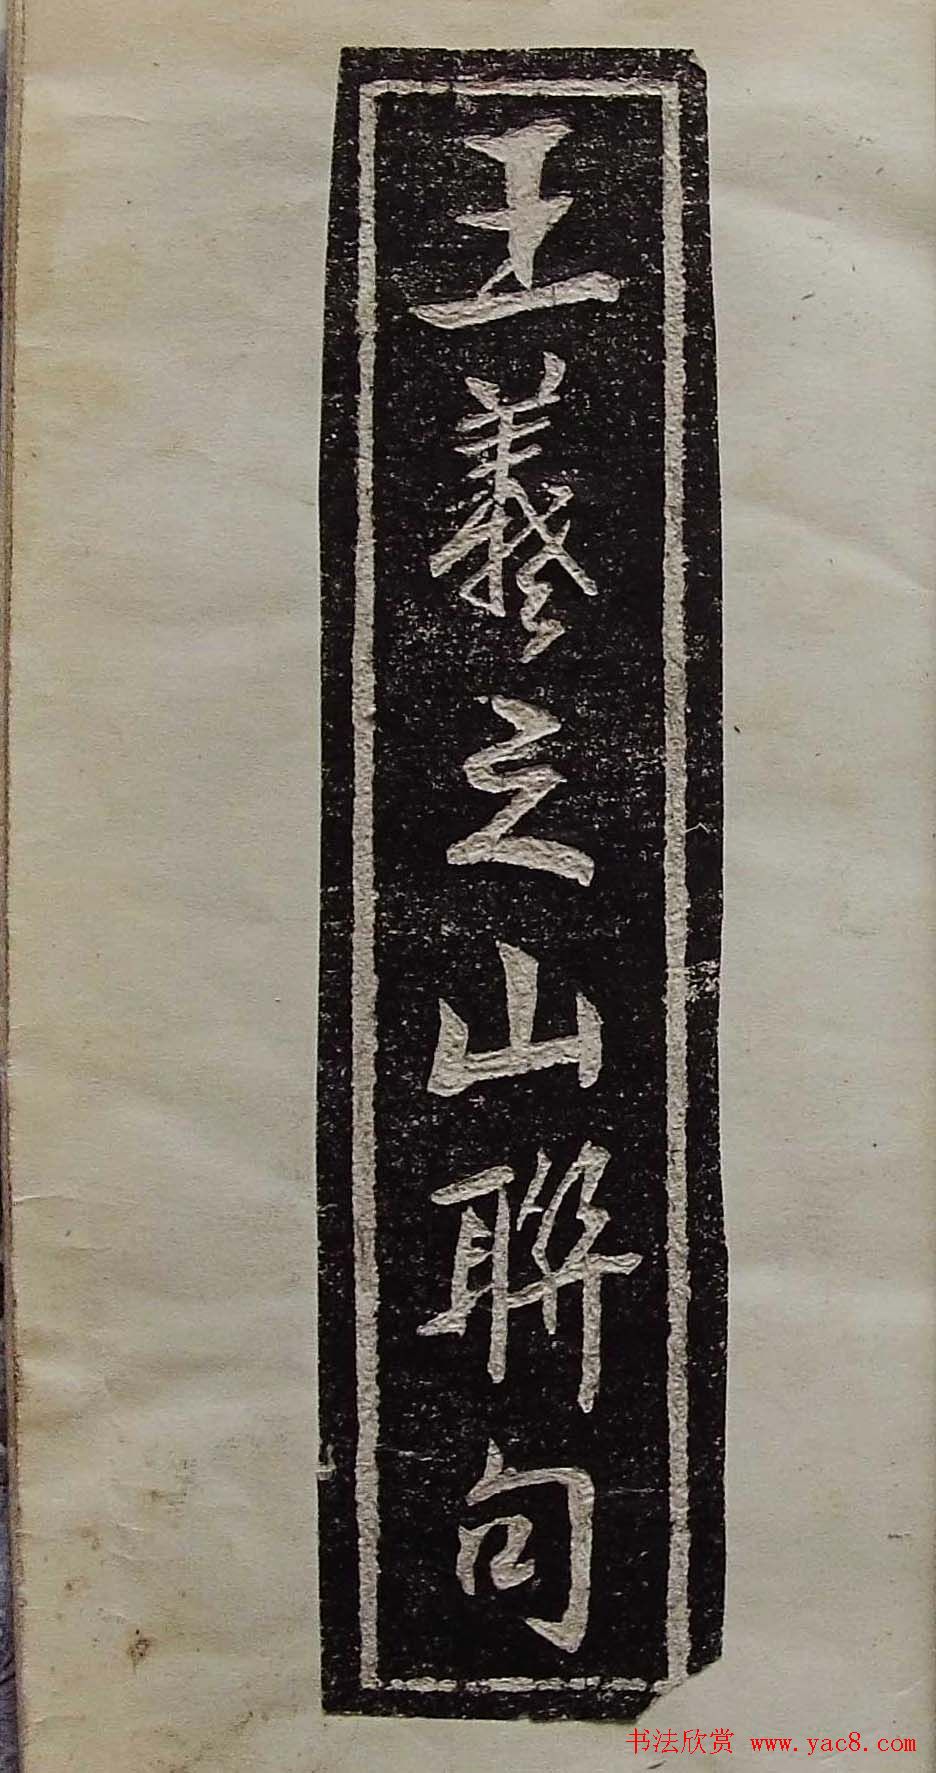 王羲之山聯句
书法欣赏 www.yac8.com